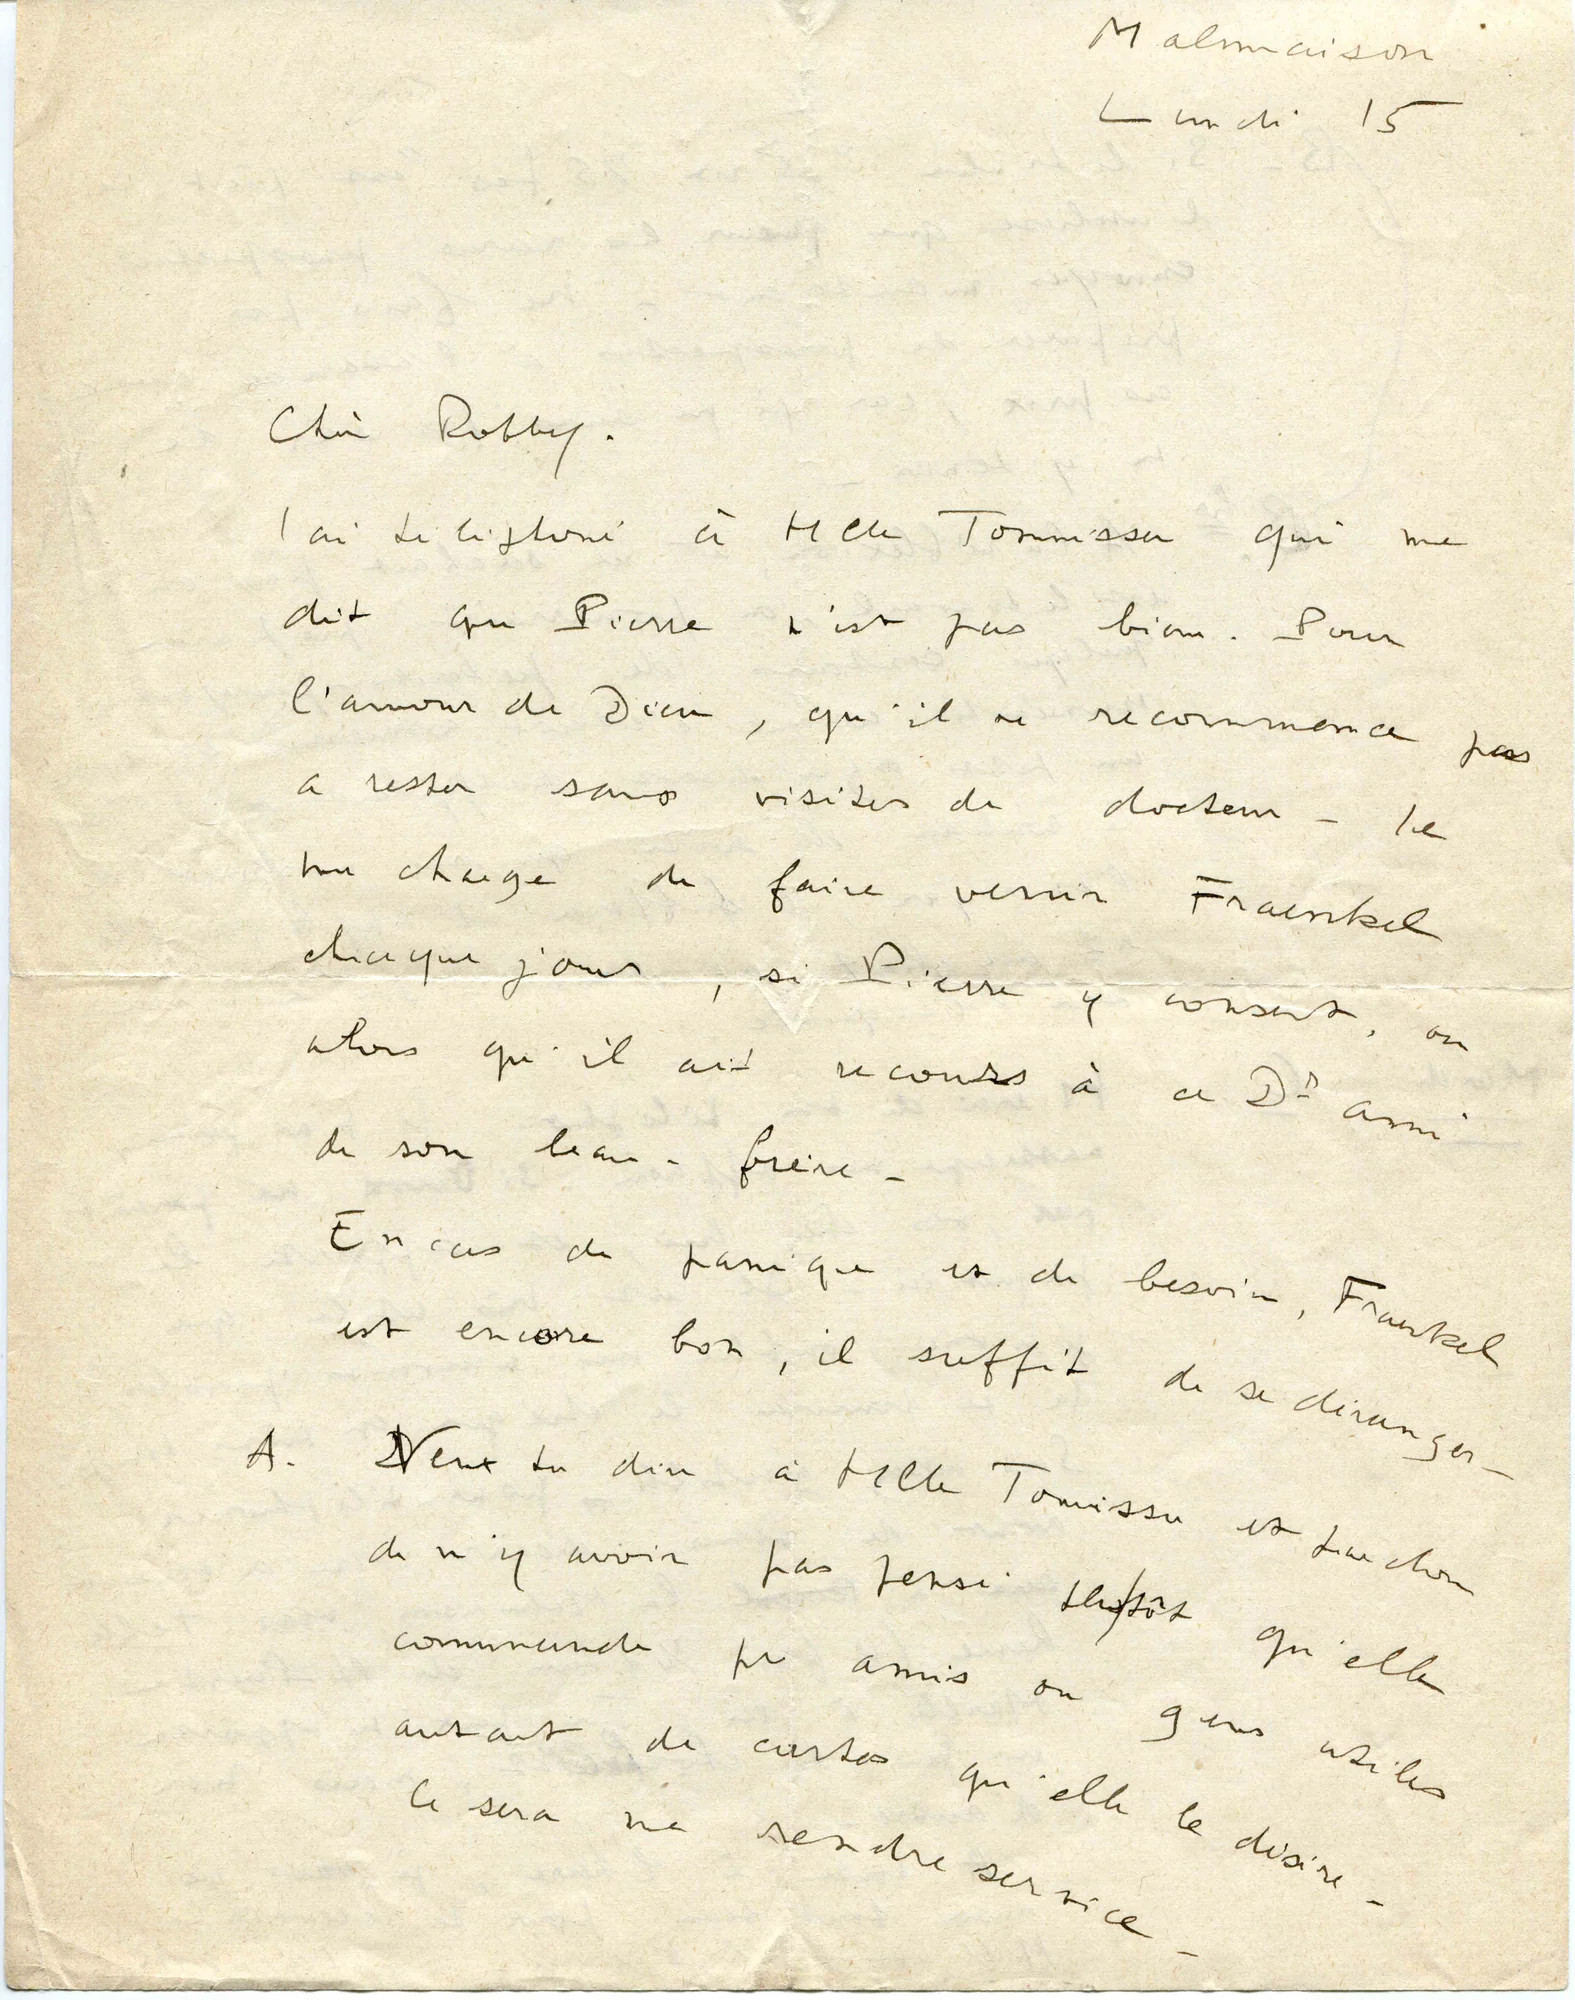 Malmaison
Lundi 15
Cher Robby.
J'ai téléphoné à Mlle Tomissu qui me
dit que Pierre n'est pas bien. Pour
l'amour de Dieu, qu'il ne recommence pas
a rester sans visites de docteur - Je
me charge de faire venir Fraenkel
chaque jour, si Pierre y consent, ou
alors qu'il ait recours à ce Dr ami
de son beau-frère -
En cas de panique et de besoin, Fraenkel
est encore bon, il suffit de se déranger -
A. Veux tu dire à Mlle Tomissu et pardon
de n'y avoir pas pensé plutôt qu'elle
commande pr amis ou gens utiles
autant de cartes qu'elle le désire -
Ce sera me rendre service -